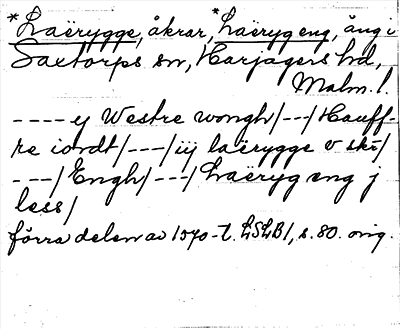 *Laërygge, åkrar, *Laëryg eng, äng i
Saxtorps sn, Harjagers hd,
Malm. l.
---- y Westre wongh/--/Hauff-
re iordt/---/iij laërygge v skt/
---/Engh/---/Laëryg eng j
less/
förra delen av 1570-t. LSLB1, s. 80. orig.